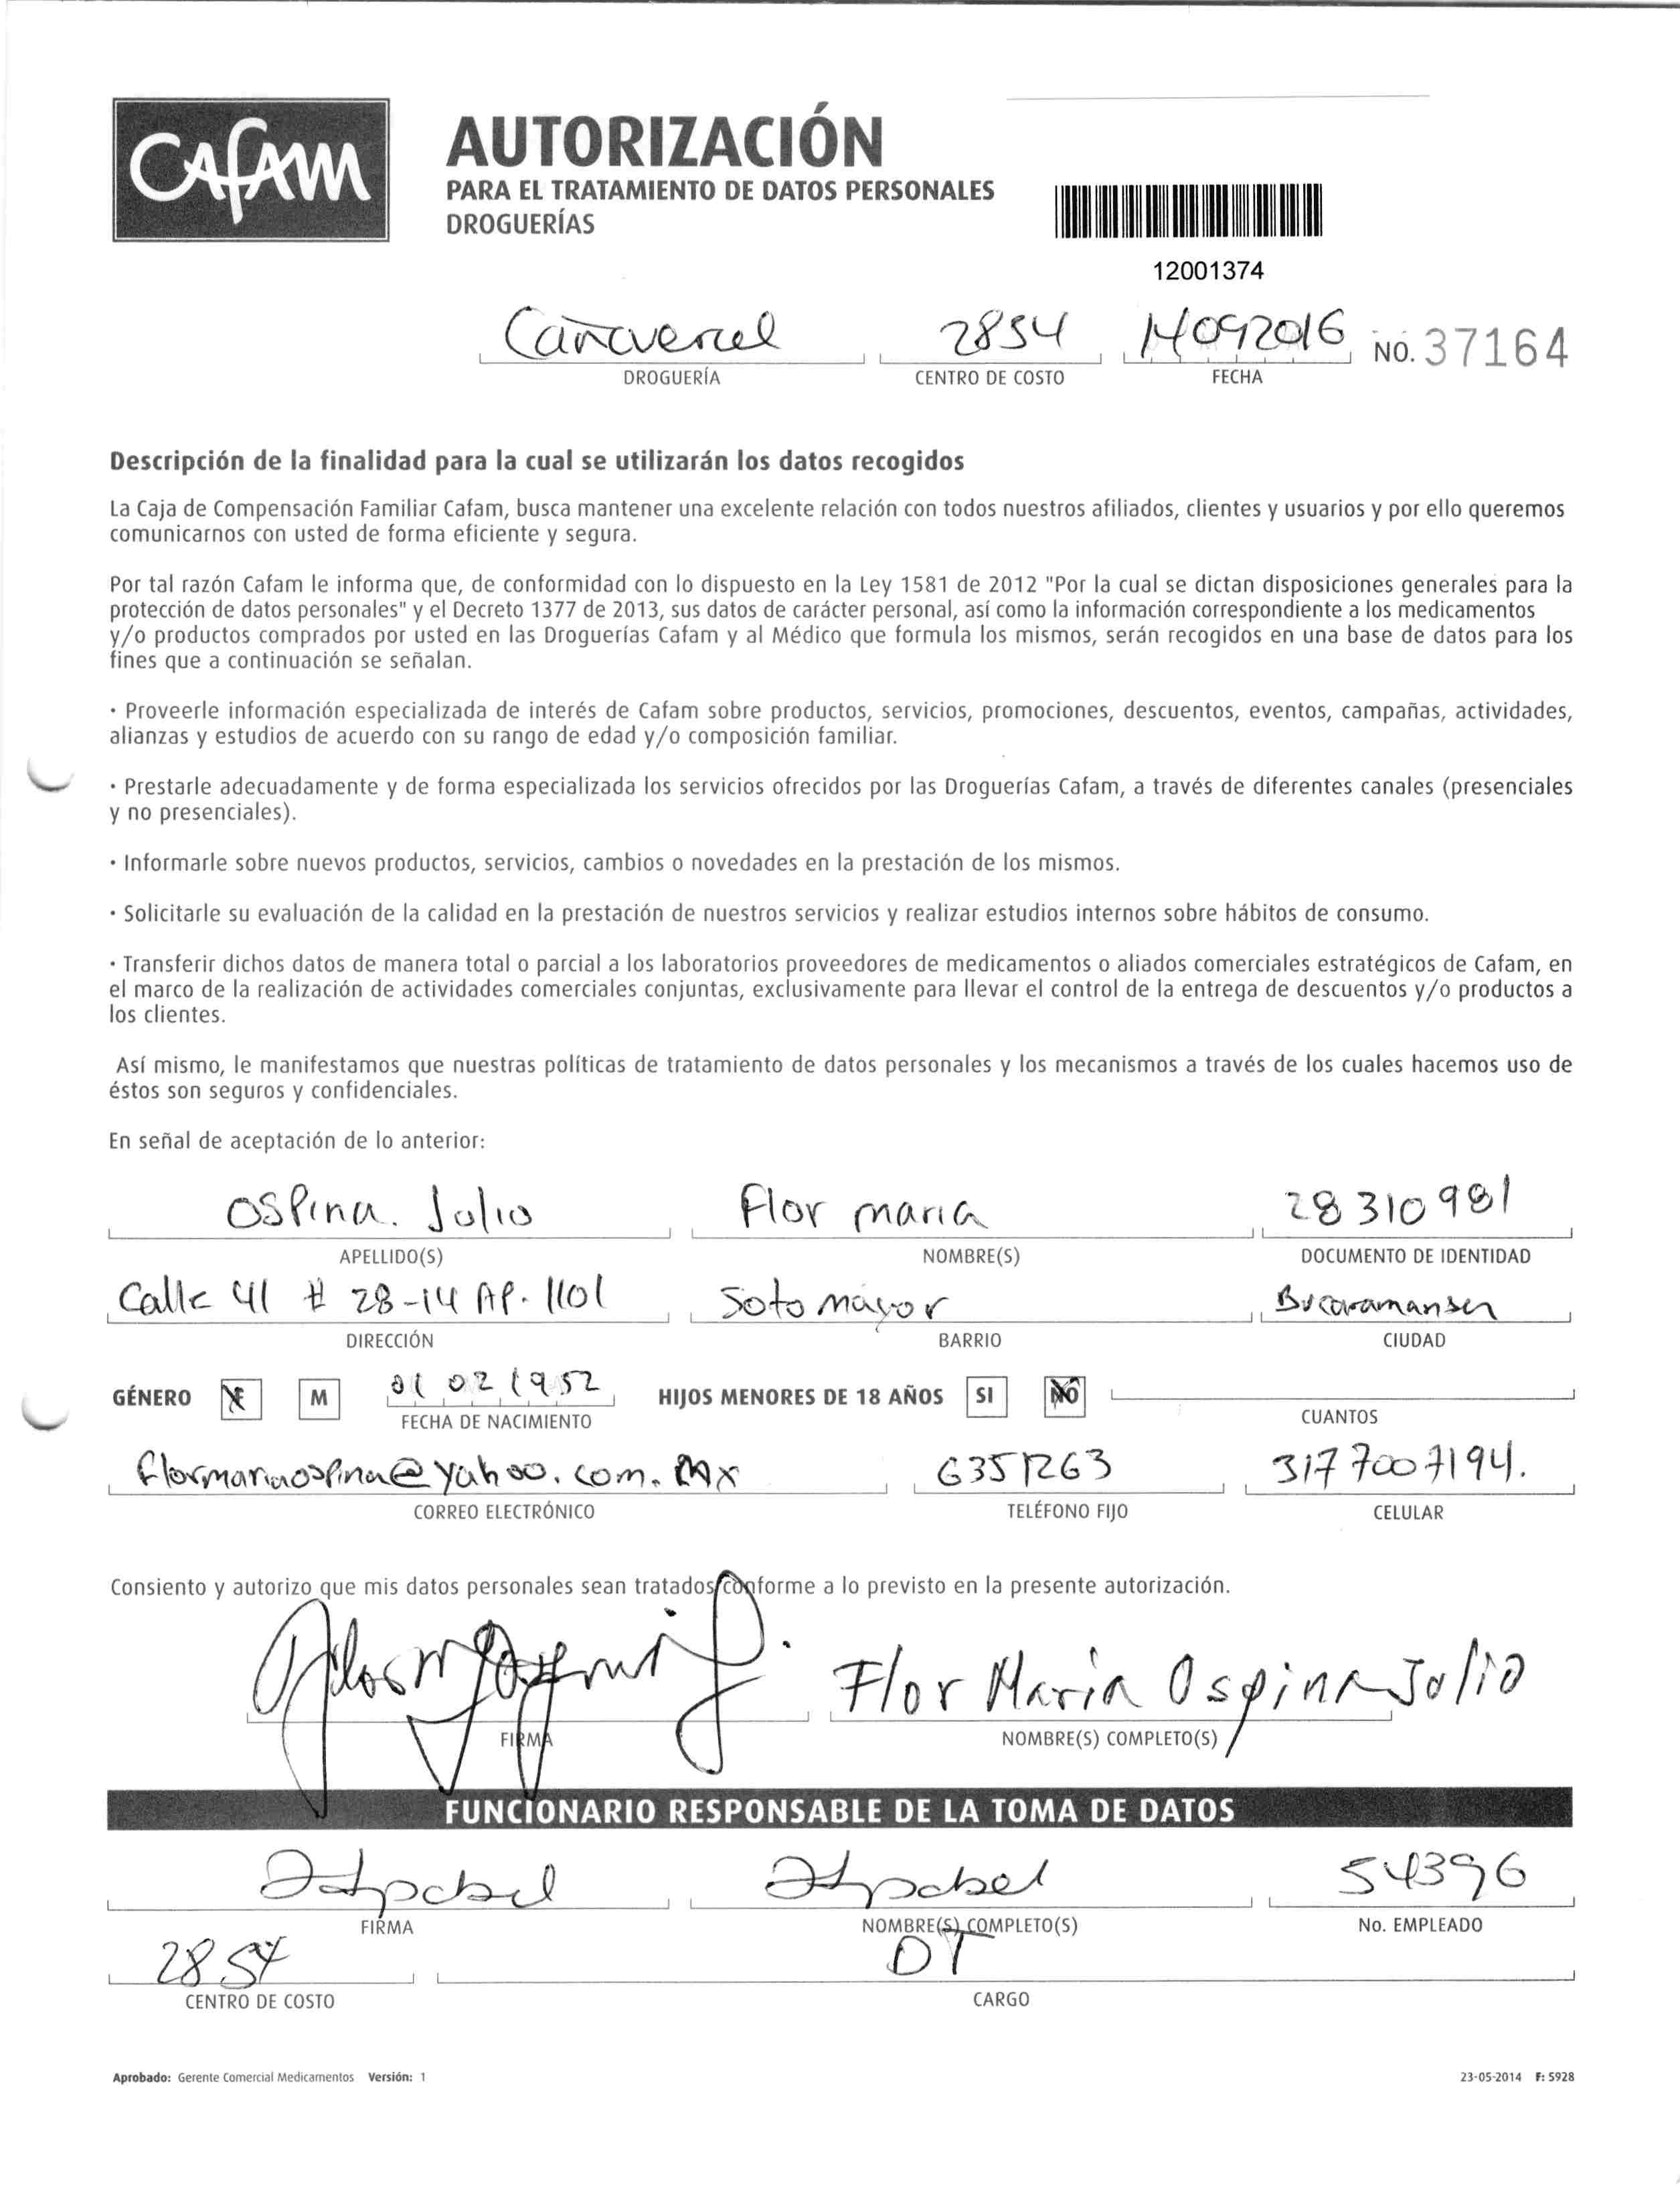 CAFAM
AUTORIZACIÓN
PARA EL TRATAMIENTO DE DATOS PERSONALES
DROGUERÍAS
12001374
Cañaveral 2854 14092016 NO. 37164
DROGUERÍA CENTRO DE COSTO FECHA
Descripción de la finalidad para la cual se utilizarán los datos recogidos
La Caja de Compensación Familiar Cafam, busca mantener una excelente relación con todos nuestros afiliados, clientes y usuarios y por ello queremos
comunicarnos con usted de forma eficiente y segura.
Por tal razón Cafam le informa que, de conformidad con lo dispuesto en la Ley 1581 de 2012 "Por la cual se dictan disposiciones generales para la
protección de datos personales" y el Decreto 1377 de 2013, sus datos de carácter personal, así como la información correspondiente a los medicamentos
y/o productos comprados por usted en las Droguerías Cafam y al Médico que formula los mismos, serán recogidos en una base de datos para los
fines que a continuación se señalan.
· Proveerle información especializada de interés de Cafam sobre productos, servicios, promociones, descuentos, eventos, campañas, actividades,
alianzas y estudios de acuerdo con su rango de edad y/o composición familiar.
· Prestarle adecuadamente y de forma especializada los servicios ofrecidos por las Droguerías Cafam, a través de diferentes canales (presenciales
y no presenciales).
· Informarle sobre nuevos productos, servicios, cambios o novedades en la prestación de los mismos.
· Solicitarle su evaluación de la calidad en la prestación de nuestros servicios y realizar estudios internos sobre hábitos de consumo.
· Transferir dichos datos de manera total o parcial a los laboratorios proveedores de medicamentos o aliados comerciales estratégicos de Cafam, en
el marco de la realización de actividades comerciales conjuntas, exclusivamente para llevar el control de la entrega de descuentos y/o productos a
los clientes.
Así mismo, le manifestamos que nuestras políticas de tratamiento de datos personales y los mecanismos a través de los cuales hacemos uso de
éstos son seguros y confidenciales.
En señal de aceptación de lo anterior:
Ospina. Julio Flor maria 28310981
APELLIDO(S) NOMBRE(S) DOCUMENTO DE IDENTIDAD
Calle 41 # 28-14 AP. 1101 Soto mayor Bucaramanga
DIRECCIÓN BARRIO CIUDAD
GÉNERO F M 01 02 1952 HIJOS MENORES DE 18 AÑOS SI NO
FECHA DE NACIMIENTO CUANTOS
flormariaospina@yahoo.com.Mx 6351263 317 7007194.
CORREO ELECTRÓNICO TELÉFONO FIJO CELULAR
Consiento y autorizo que mis datos personales sean tratados conforme a lo previsto en la presente autorización.
Flor Maria Ospina Julio
FIRMA NOMBRE(S) COMPLETO(S)
FUNCIONARIO RESPONSABLE DE LA TOMA DE DATOS
54396
FIRMA NOMBRE(S) COMPLETO(S) No. EMPLEADO
2854 DT
CENTRO DE COSTO CARGO
Aprobado: Gerente Comercial Medicamentos Versión: 1 23-05-2014 F: 5928